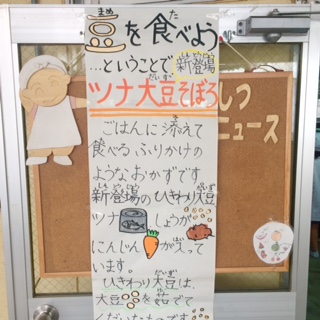 豆を食べよう
…ということで 新登場
ツナ大豆そぼろ
ごはんに添えて
食べるふりかけの
ようなおかずです
新登場のひきわり大豆
ツナ しょうが
にんじん が入って
います。
ひきわり大豆は、
大豆 を茹でて
くだいたものです
しつ
ニュース